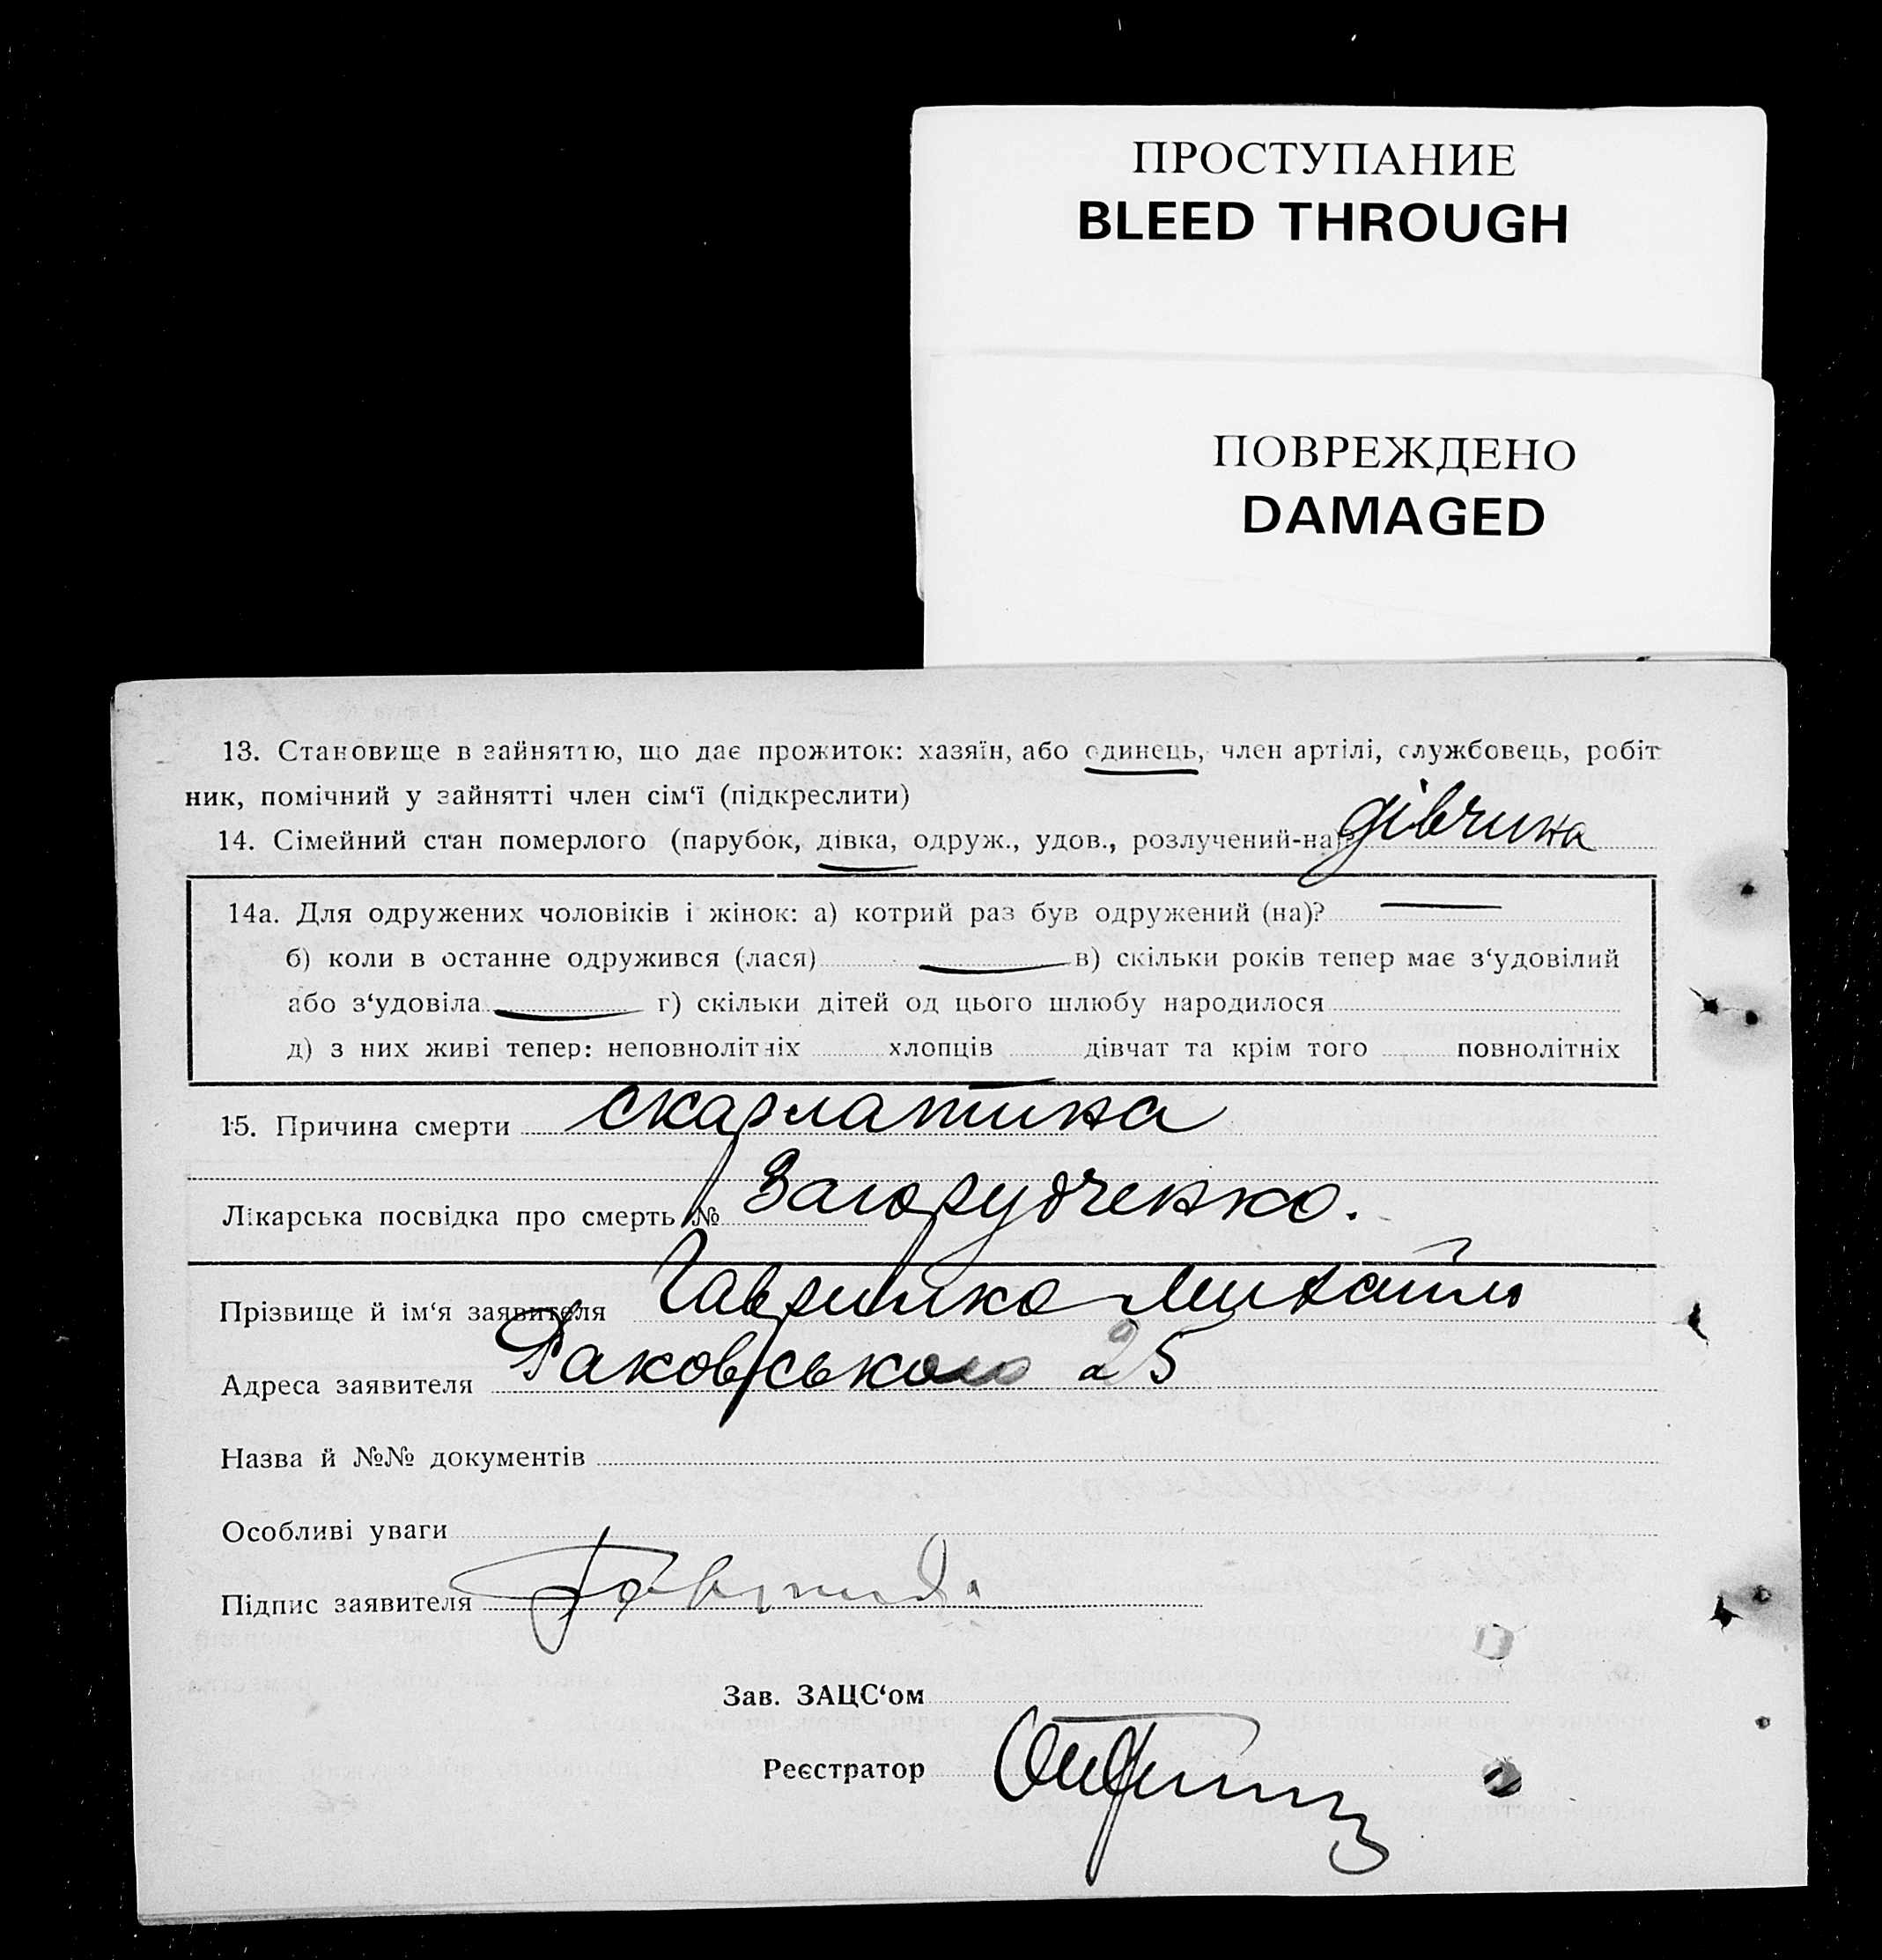 ПРОСТУПАНИЕ
BLEED THROUGH
ПОВРЕЖДЕНО
DAMAGED
13. Становище в зайняттю, що дає прожиток: хазяїн, або одинець, член артілі, службовець, робіт
ник, помічний у зайнятті член сім‘ї (підкреслити)
14. Сімейний стан померлого (парубок, дівка, одруж., удов., розлучений-на) дівчина
14а. Для одружених чоловіків і жінок: а) котрий раз був одружений (на)?
б) коли в останне одружився (лася) в) скільки років тепер має з‘удовілий
або з‘удовіла г) скільки дітей од цього шлюбу народилося
д) з них живі тепер: неповнолітніх хлопців дівчат та крім того повнолітніх
15. Причина смерти скарлатина
Лікарська посвідка про смерть № Загорудченко.
Прізвище й ім‘я заявителя Гаврилко Михайло
Адреса заявителя Раковського 25
Назва й №№ документів
Особливі уваги
Підпис заявителя
Зав. ЗАЦС‘ом
Реєстратор